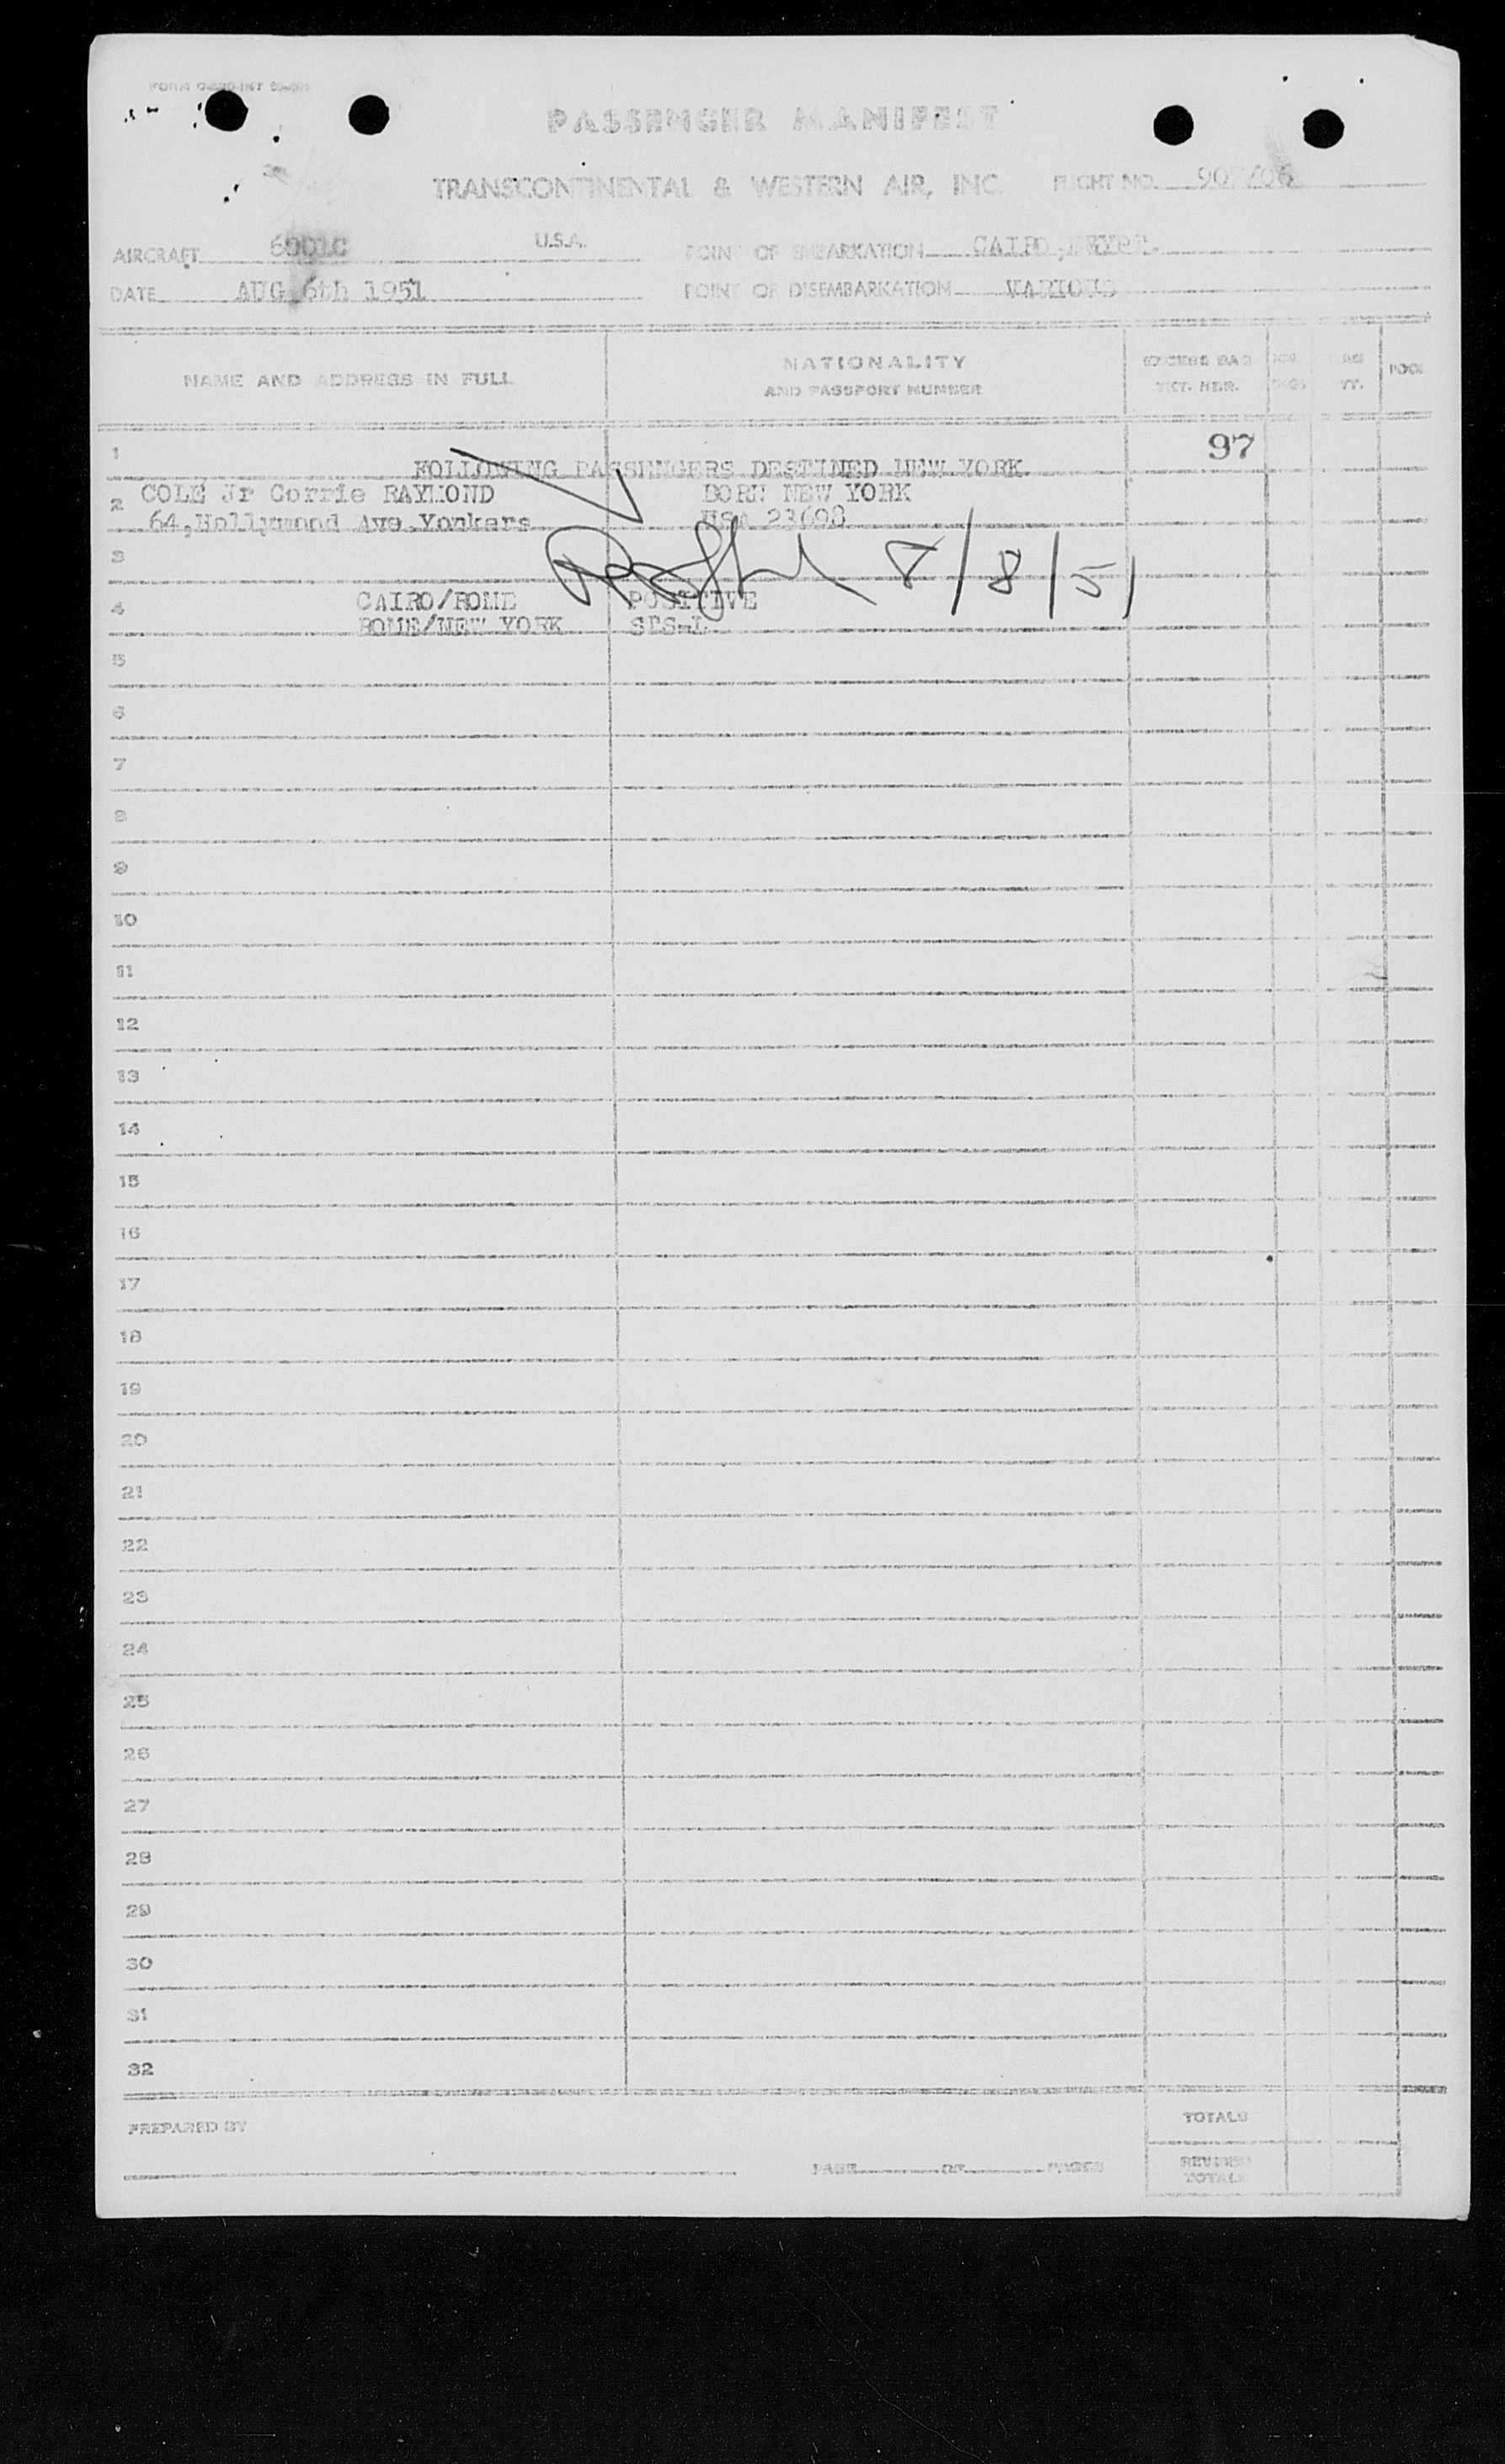 PASSENGER MANIFEST
TRANSCONTINENTAL & WESTERN AIR, INC. FLIGHT NO.
AIRCRAFT 6001C U.S.A. POINT OF EMBARKATION CAIRO, EGYPT.
DATE AUG 6th 1951 POINT OF DISEMBARKATION VARIOUS
NAME AND ADDRESS IN FULL
NATIONALITY
AND PASSPORT NUMBER
EXCESS BAG
TKT. NBR.
1 97
FOLLOWING PASSENGERS DESTINED NEW YORK
2 COLE Jr Corrie RAYMOND BORN NEW YORK
64,Hollywood Ave.Yonkers USA 23698
3 8/8/51
4 CAIRO/ROME POSITIVE
ROME/NEW YORK
5
6
7
8
9
10
11
12
13
14
15
16
17
18
19
20
21
22
23
24
25
26
27
28
29
30
31
32
PREPARED BY TOTALS
PAGE OF PAGES REVISED
TOTALS